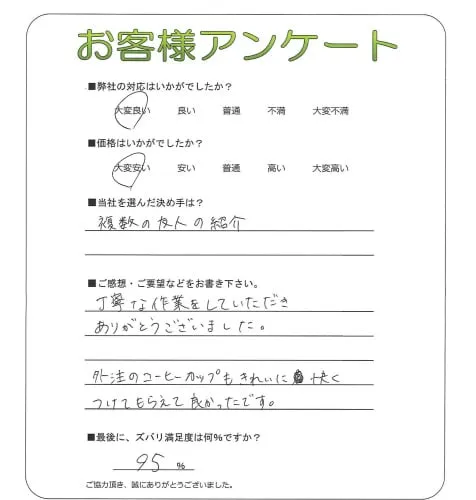 お客様アンケート
■弊社の対応はいかがでしたか？
大変良い 良い 普通 不満 大変不満
■価格はいかがでしたか？
大変安い 安い 普通 高い 大変高い
■当社を選んだ決め手は？
複数の友人の紹介
■ご感想・ご要望などをお書き下さい。
丁寧な作業をしていただき
ありがとうございました。
外注のコーヒーカップもきれいに 快く
つけてもらえて良かったです。
■最後に、ズバリ満足度は何％ですか？
95 %
ご協力頂き、誠にありがとうございました。